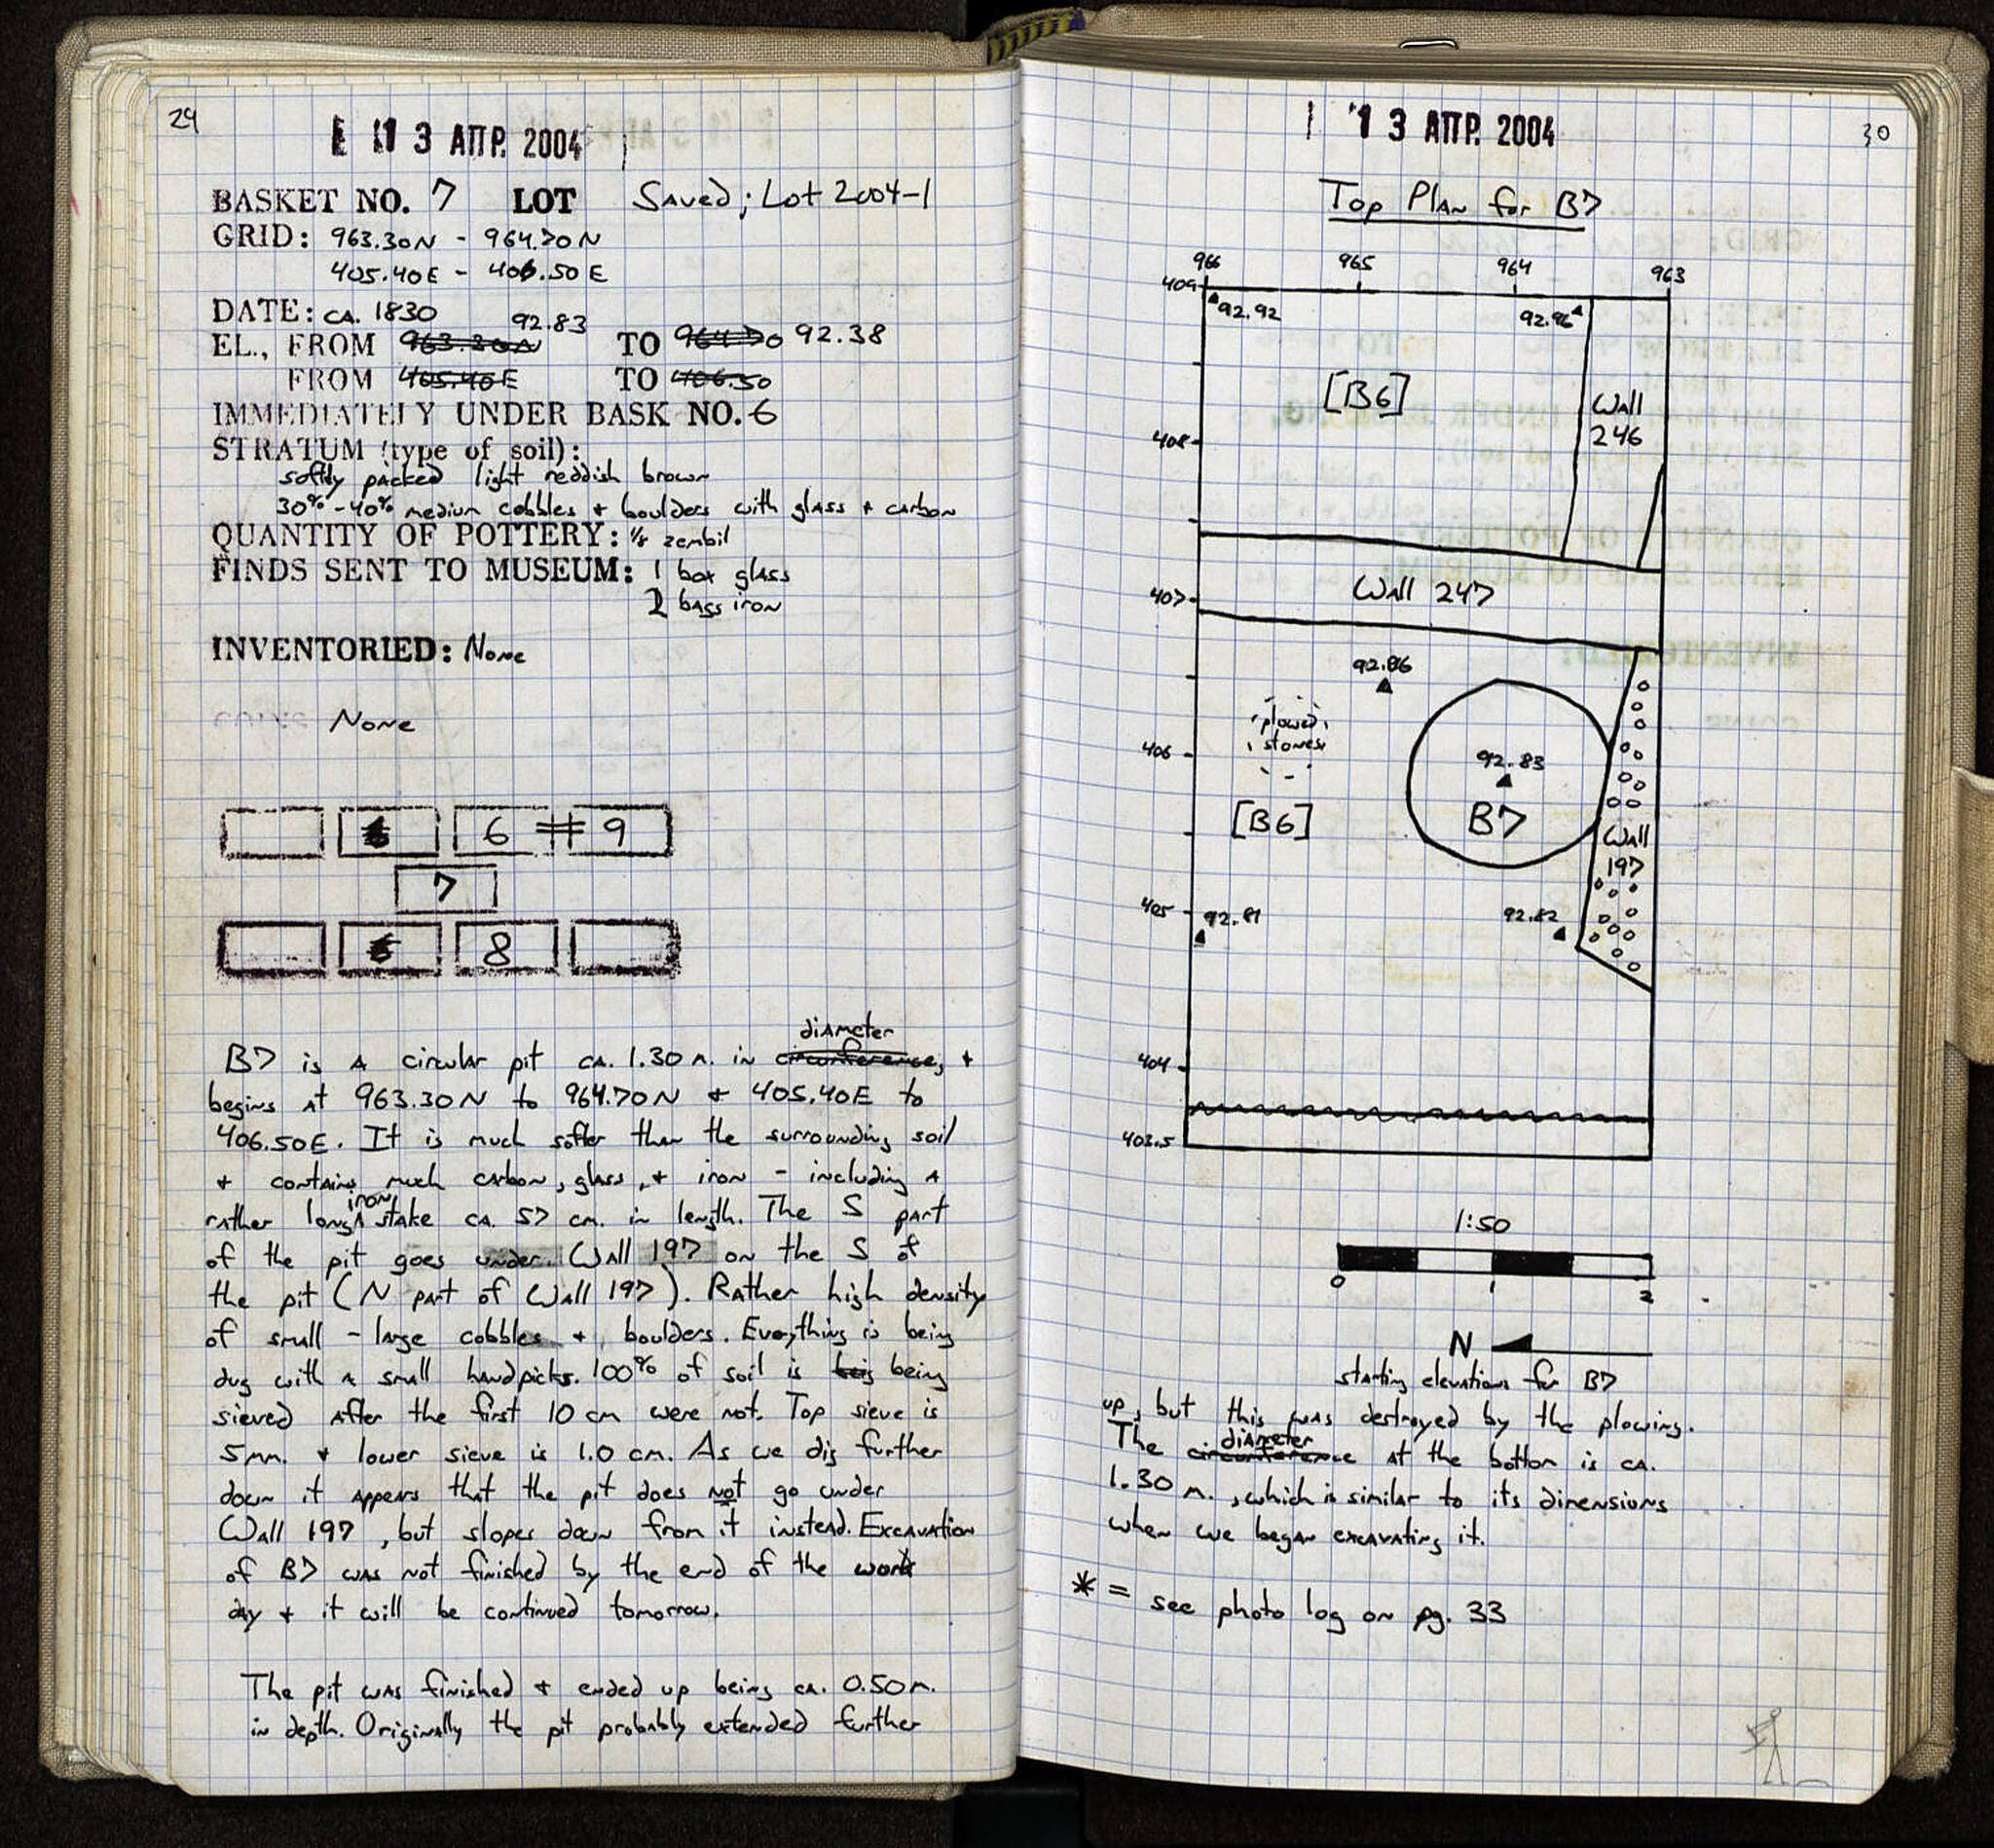 29
13 ΑΠΡ. 2004
BASKET NO. 7 LOT Saved; Lot 2004-1
GRID: 963.30N - 964.70N
405.40E - 406.50E
DATE: ca. 1830
92.83
EL., FROM 963.30N TO 964.70 92.38
FROM 405.40E TO 406.50
IMMEDIATELY UNDER BASK NO. 6
STRATUM (type of soil):
softly packed light reddish brown
30% - 40% medium cobbles + boulders with glass + carbon
QUANTITY OF POTTERY: 1/8 zembil
FINDS SENT TO MUSEUM: 1 box glass
2 bags iron
INVENTORIED: None
COINS None
6 # 9
7
8
diameter
B7 is a circular pit ca. 1.30 m. in circumference, +
begins at 963.30N to 964.70N + 405.40E to
406.50E. It is much softer than the surrounding soil
+ contains much carbon, glass, + iron - including a
iron
rather long stake ca. 57 cm. in length. The S part
of the pit goes under Wall 197 on the S of
the pit (N part of Wall 197). Rather high density
of small - large cobbles + boulders. Everything is being
dug with a small handpicks. 100% of soil is being
sieved after the first 10 cm were not. Top sieve is
5mm. + lower sieve is 1.0 cm. As we dig further
down it appears that the pit does not go under
Wall 197, but slopes down from it instead. Excavation
of B7 was not finished by the end of the work
day + it will be continued tomorrow.
The pit was finished + ended up being ca. 0.50m.
in depth. Originally the pit probably extended further
13 ΑΠΡ. 2004
30
Top Plan for B7
966 965 964 963
409
92.92 92.96
[B6]
Wall
246
408
407
Wall 247
92.86
plowed
stones
406
92.83
[B6] B7
Wall
197
405
92.81 92.82
404
403.5
1:50
0 1 2
N
starting elevations for B7
up, but this was destroyed by the plowing.
diameter
The circumference at the bottom is ca.
1.30 m., which is similar to its dimensions
when we began excavating it.
* = see photo log on pg. 33